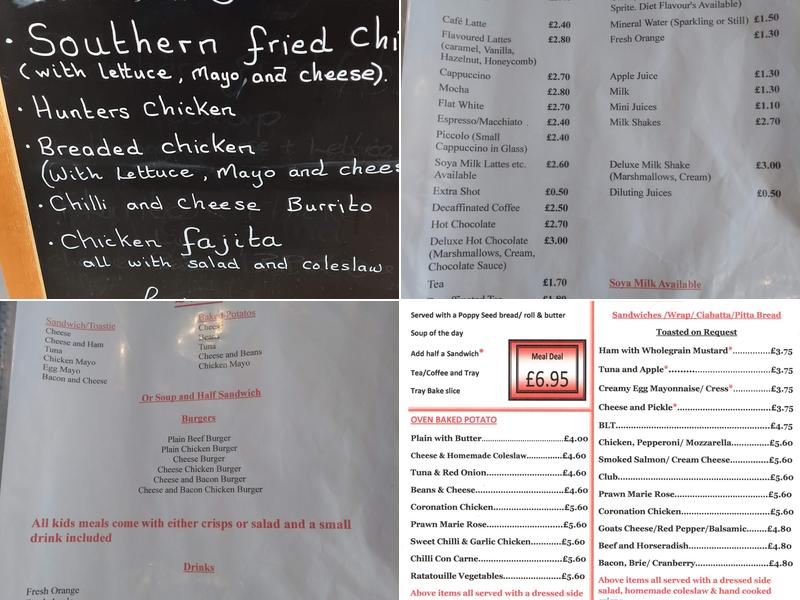 • Southern fried Chi
(with lettuce, Mayo, and cheese).
• Hunters Chicken
• Breaded chicken
(With Lettuce, Mayo and chees
• Chilli and cheese Burrito
• Chicken fajita
all with salad and coleslaw
Sprite. Diet Flavour's Available)
Café Latte £2.40
Flavoured Lattes £2.80
(caramel, Vanilla,
Hazelnut, Honeycomb)
Cappuccino £2.70
Mocha £2.80
Flat White £2.70
Espresso/Macchiato £2.40
Piccolo (Small £2.40
Cappuccino in Glass)
Soya Milk Lattes etc. £2.60
Available
Extra Shot £0.50
Decaffinated Coffee £2.50
Hot Chocolate £2.70
Deluxe Hot Chocolate £3.00
(Marshmallows, Cream,
Chocolate Sauce)
Tea £1.70
Mineral Water (Sparkling or Still) £1.50
Fresh Orange £1.30
Apple Juice £1.30
Milk £1.30
Mini Juices £1.10
Milk Shakes £2.70
Deluxe Milk Shake £3.00
(Marshmallows, Cream)
Diluting Juices £0.50
Soya Milk Available
Sandwich/Toastie
Cheese
Cheese and Ham
Tuna
Chicken Mayo
Egg Mayo
Bacon and Cheese
Baked Potatoes
Cheese
Beans
Tuna
Cheese and Beans
Chicken Mayo
Or Soup and Half Sandwich
Burgers
Plain Beef Burger
Plain Chicken Burger
Cheese Burger
Cheese Chicken Burger
Cheese and Bacon Burger
Cheese and Bacon Chicken Burger
All kids meals come with either crisps or salad and a small
drink included
Drinks
Fresh Orange
Served with a Poppy Seed bread/ roll & butter
Soup of the day
Add half a Sandwich*
Tea/Coffee and Tray
Tray Bake slice
Meal Deal
£6.95
OVEN BAKED POTATO
Plain with Butter............£4.00
Cheese & Homemade Coleslaw........£4.60
Tuna & Red Onion............£4.60
Beans & Cheese............£4.60
Coronation Chicken............£5.60
Prawn Marie Rose............£5.60
Sweet Chilli & Garlic Chicken............£5.60
Chilli Con Carne............£5.60
Ratatouille Vegetables............£5.60
Above items all served with a dressed side
Sandwiches /Wrap/ Ciabatta/Pitta Bread
Toasted on Request
Ham with Wholegrain Mustard*............£3.75
Tuna and Apple*............£3.75
Creamy Egg Mayonnaise/ Cress*............£3.75
Cheese and Pickle*............£3.75
BLT............£4.75
Chicken, Pepperoni/ Mozzarella............£5.60
Smoked Salmon/ Cream Cheese............£5.60
Club............£5.60
Prawn Marie Rose............£5.60
Coronation Chicken............£5.60
Goats Cheese/Red Pepper/Balsamic.....£4.80
Beef and Horseradish............£4.80
Bacon, Brie/ Cranberry............£4.80
Above items all served with a dressed side
salad, homemade coleslaw & hand cooked